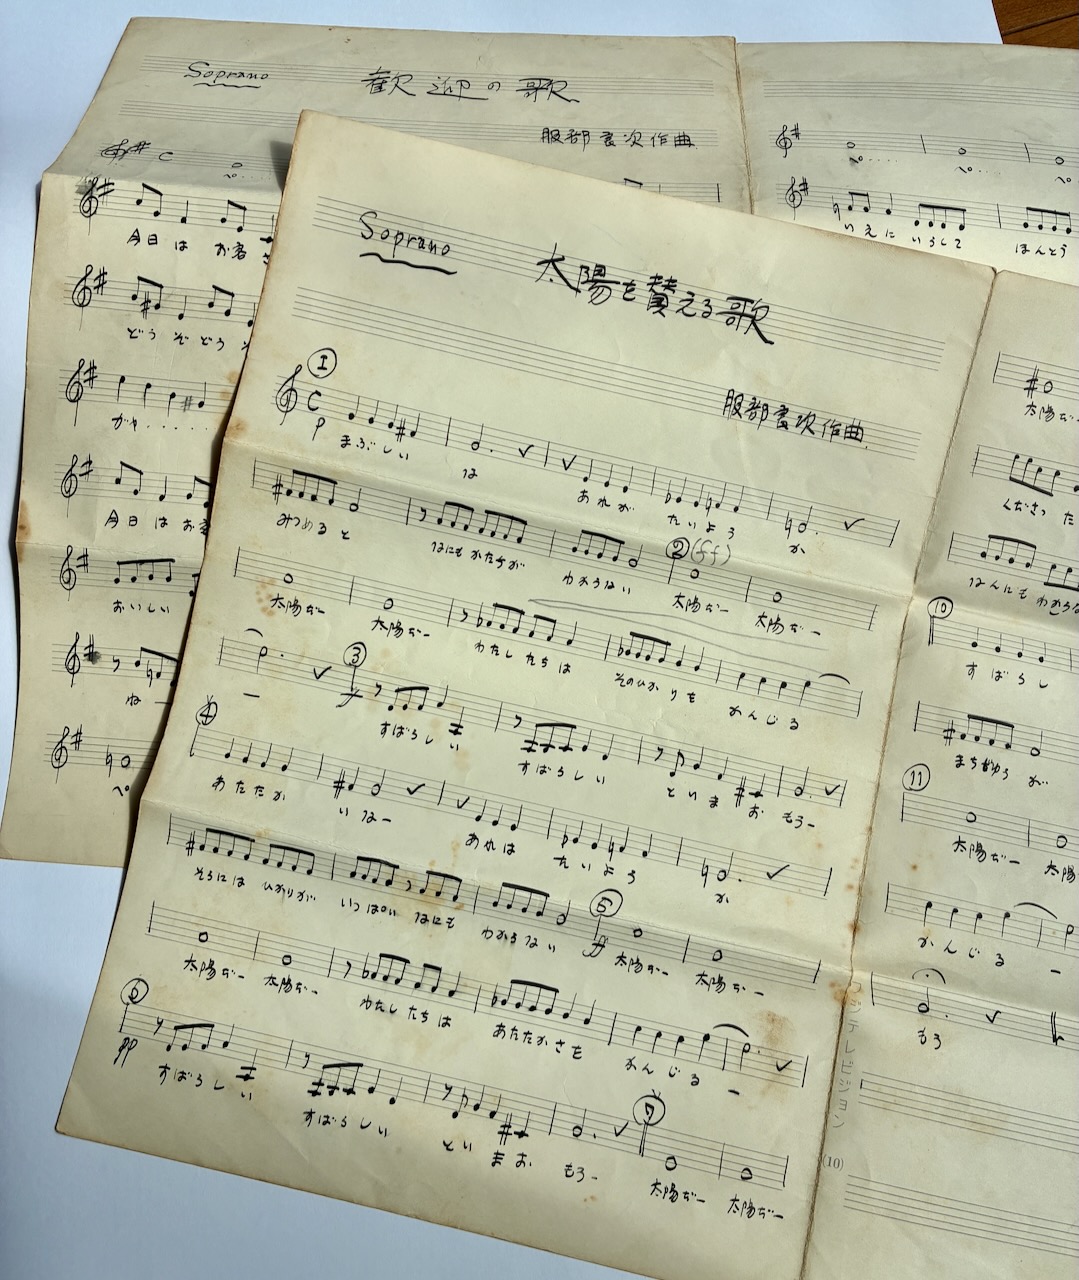 Soprano
歓迎の歌
服部良次作曲
今日は お客さ
どうぞ どう
ガヤ・・・・・
今日は お客
おいしい
ね
ペ
ペ・・・・
ペ・・・・
ペ
いえに いらして ほんとう
Soprano
太陽を賛える歌
服部良次作曲
①
C
p
まぶしい は あれが たいよう か
みつめると なにもかたちが わからない
②(ff)
太陽ぢー 太陽ぢー
太陽ぢー 太陽ぢー わたしたちは そのひかりを かんじる
ー
③
f
すばらしい すばらしい といまおもうー
④
あたたかいなー あれは たいよう か
そらには ひかりが いっぱい なにも わからない
⑤
ff
太陽ぢー 太陽ぢー
太陽ぢー 太陽ぢー わたしたちは あたたかさを かんじる ー
⑥
pp
すばらしい すばらしい といまおもうー
⑦
太陽ぢー 太陽ぢー
太陽ぢ
くださった
なんにもわからな
⑩
すばらし
まちがゆうが
⑪
太陽ぢー 太陽
かんじる ー
もう
フジテレビジョン
(10)